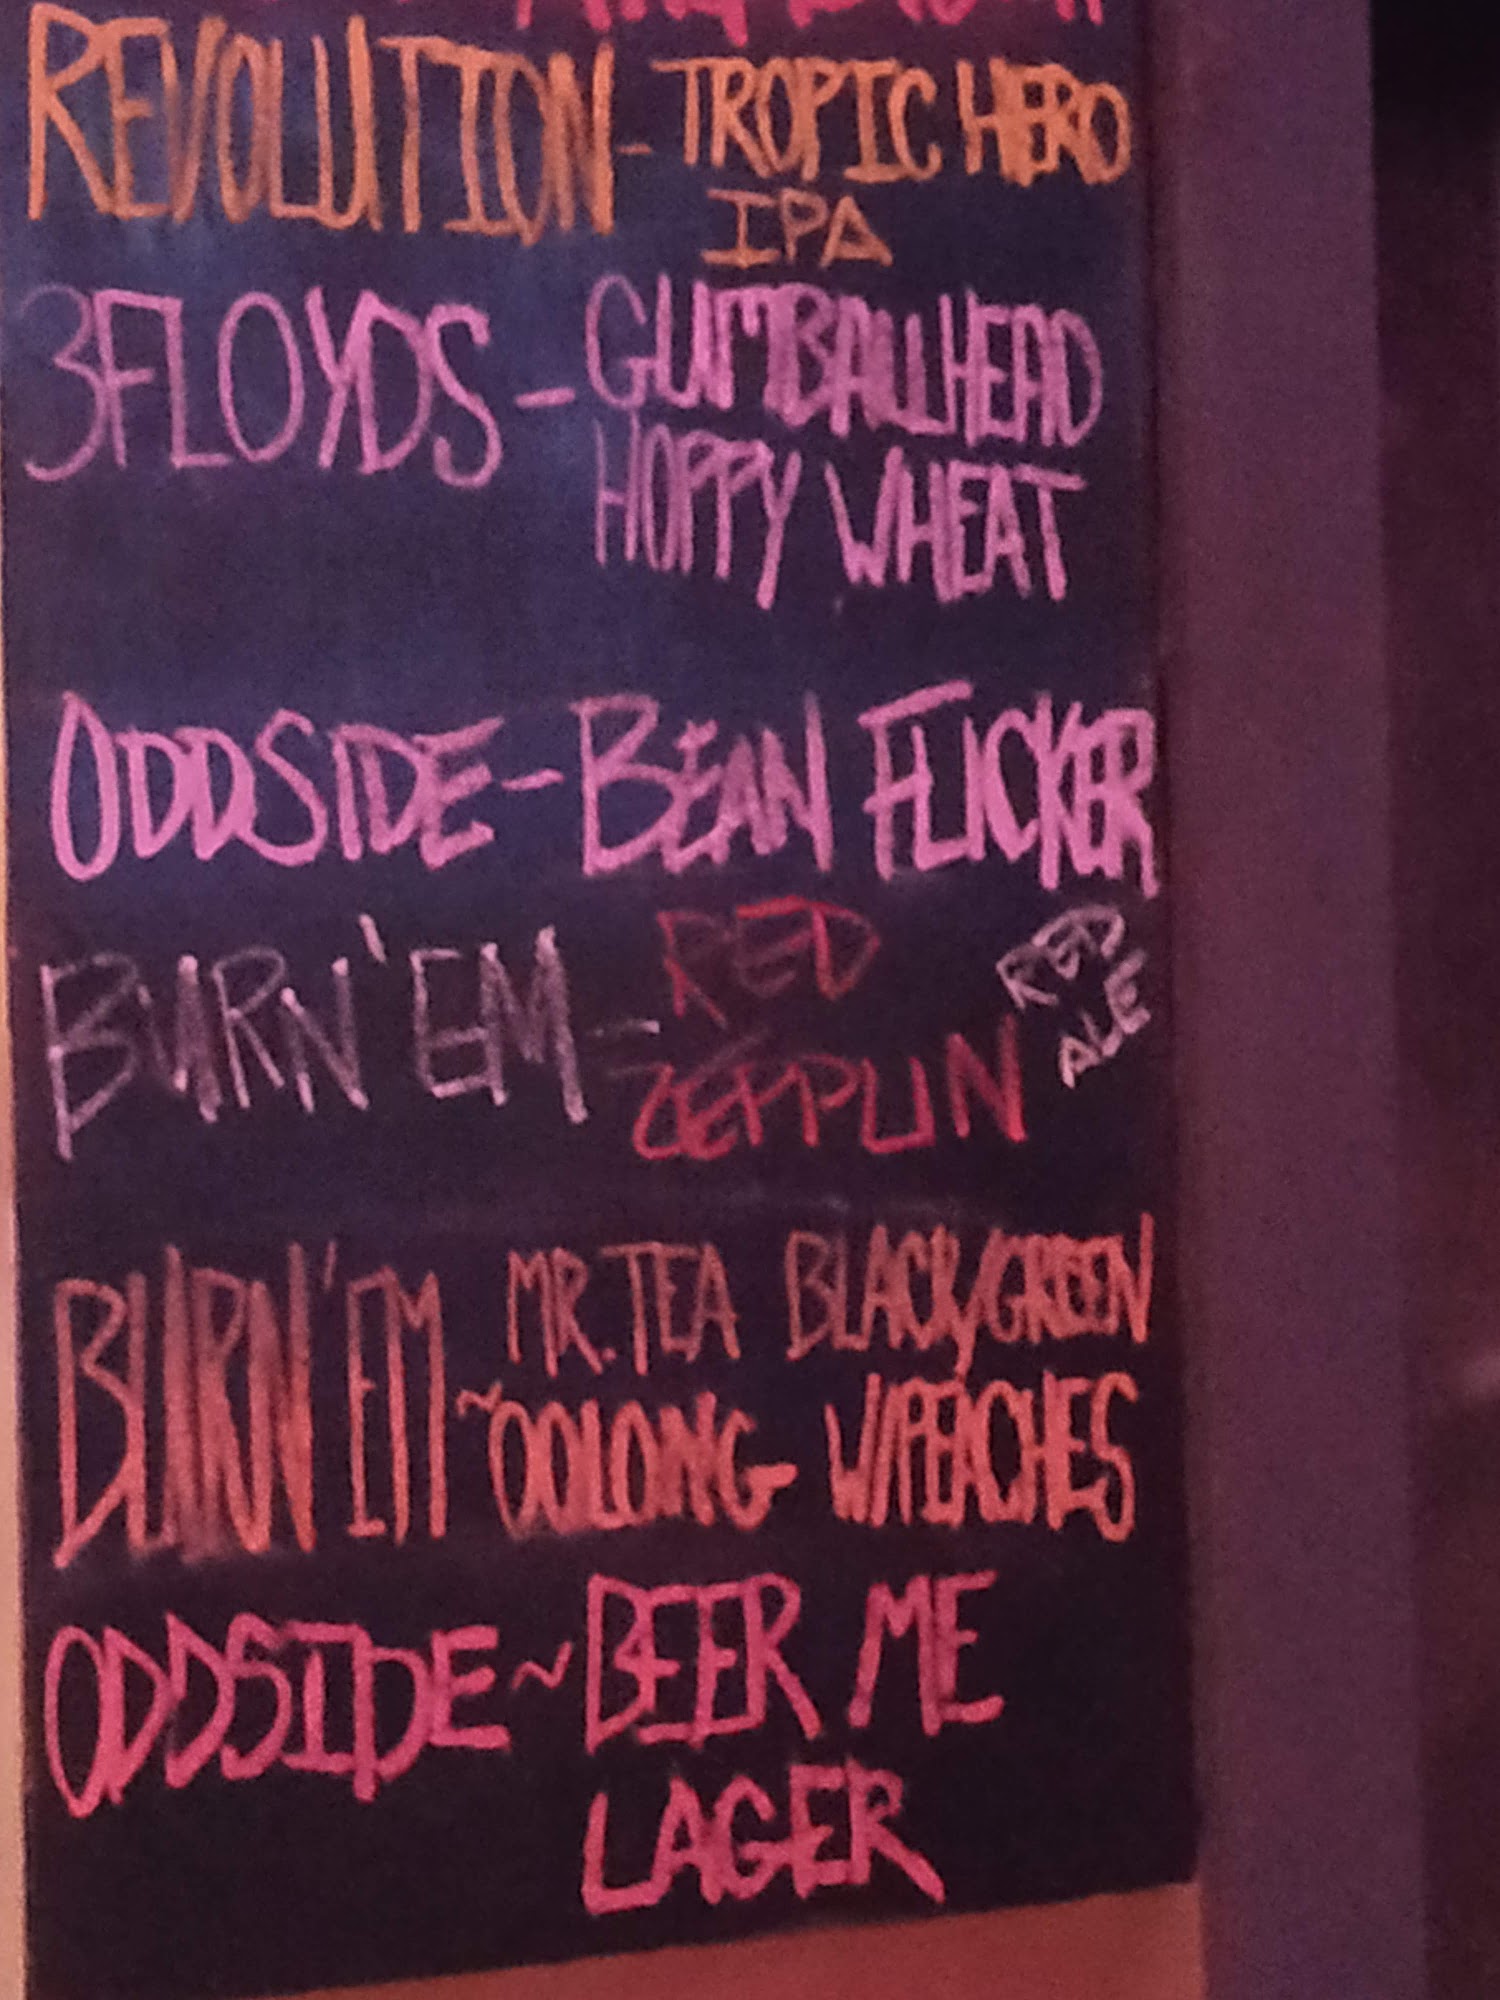 REVOLUTION - TROPIC HERO
IPA
3 FLOYDS - GUMBALLHEAD
HOPPY WHEAT
ODDSIDE - BEAN FLICKER
BURN'EM - RED
ZEPPLIN
RED
ALE
BURN'EM ~ MR. TEA BLACK/GREEN
OOLONG W/PEACHES
ODDSIDE ~ BEER ME
LAGER